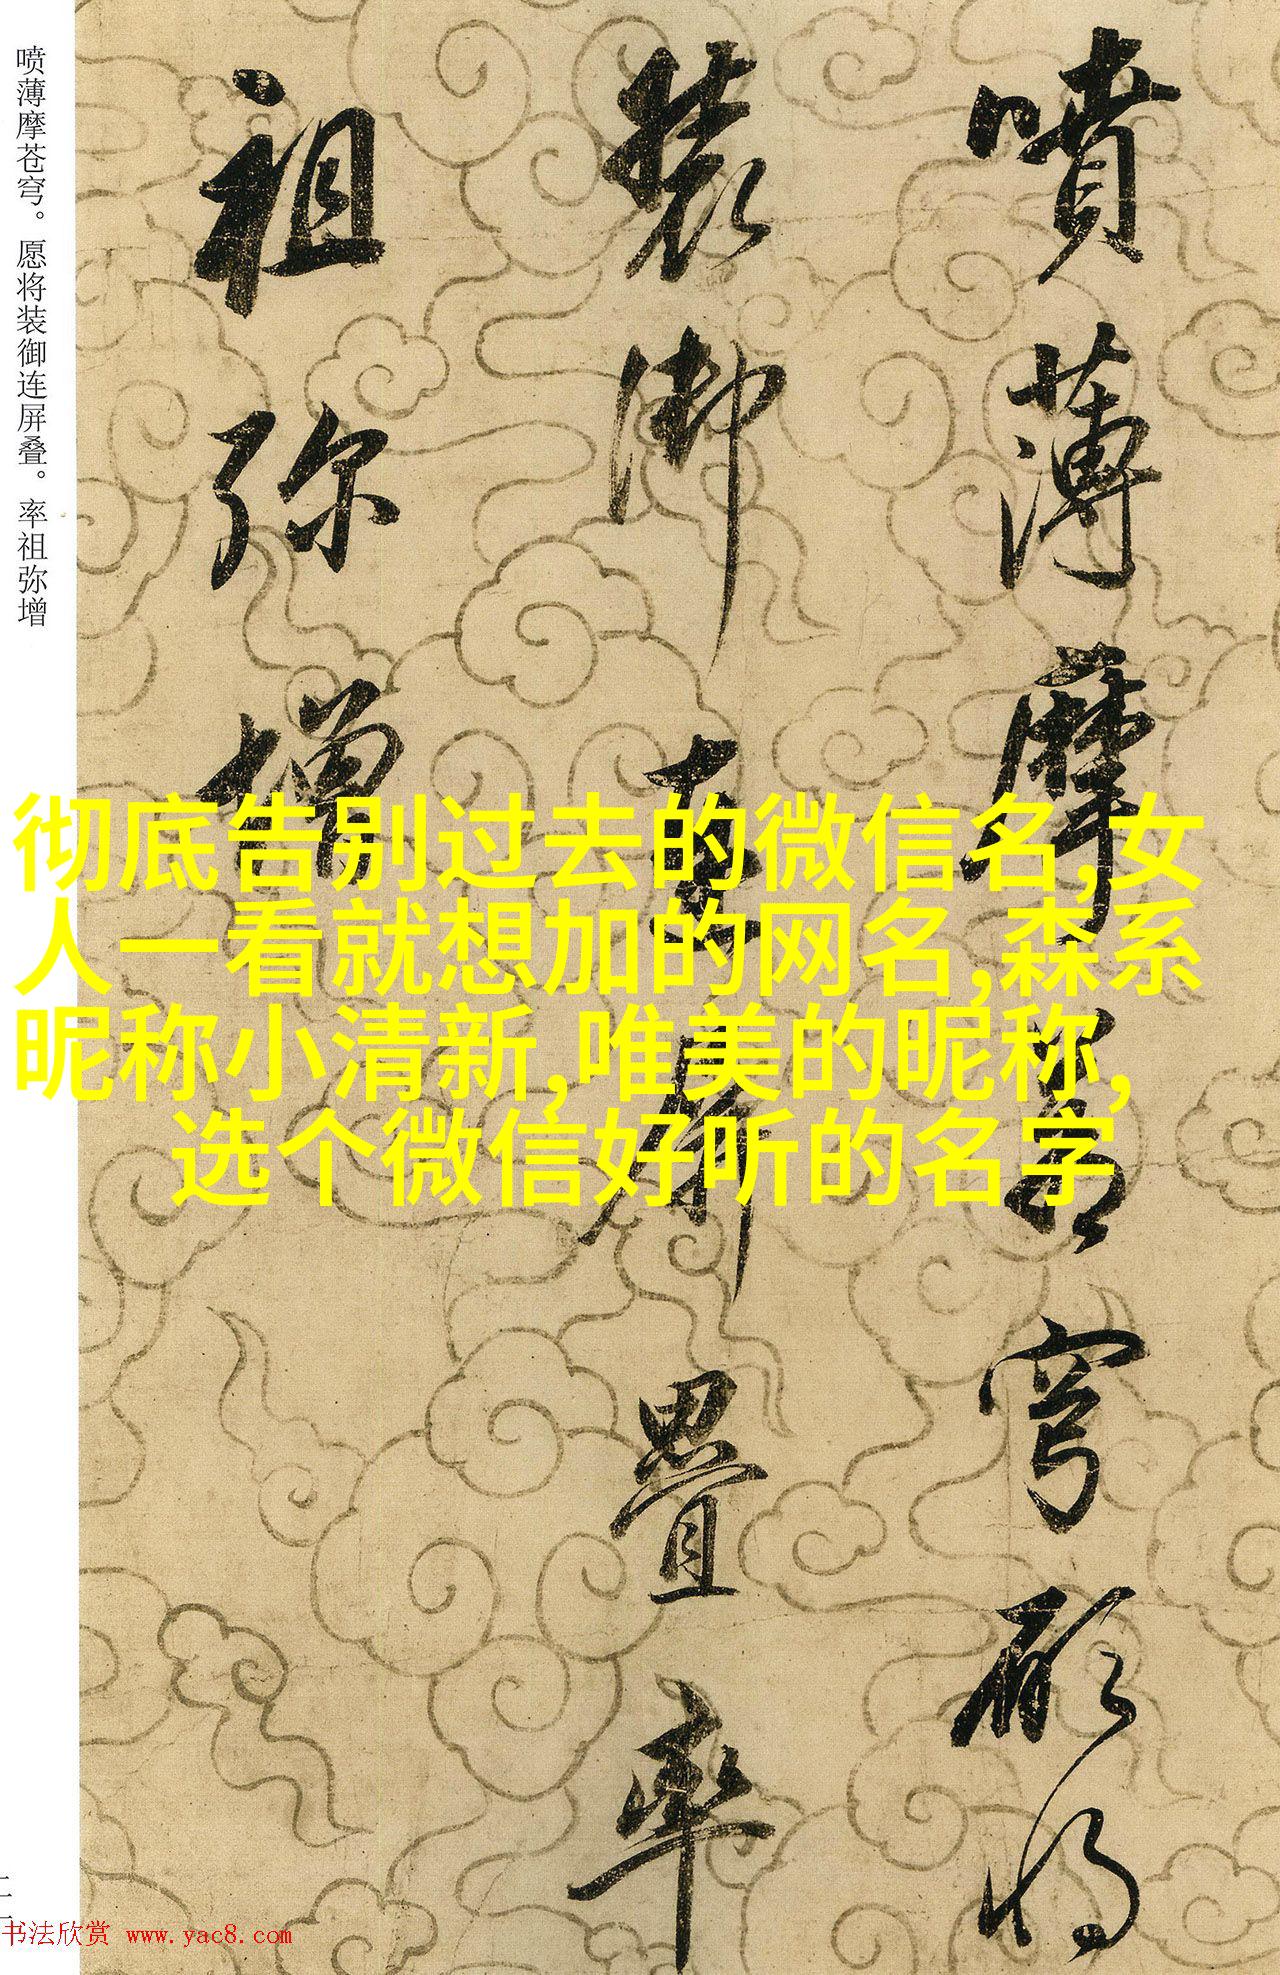 噴薄摩蒼穹願将
裝御連屏疊率
祖弥增
喷薄摩苍穹。愿将装御连屏叠。率祖弥增
彻底告别过去的微信名,女
人一看就想加的网名,森系
昵称小清新,唯美的昵称,
选个微信好听的名字
书法欣赏 www.yac8.com